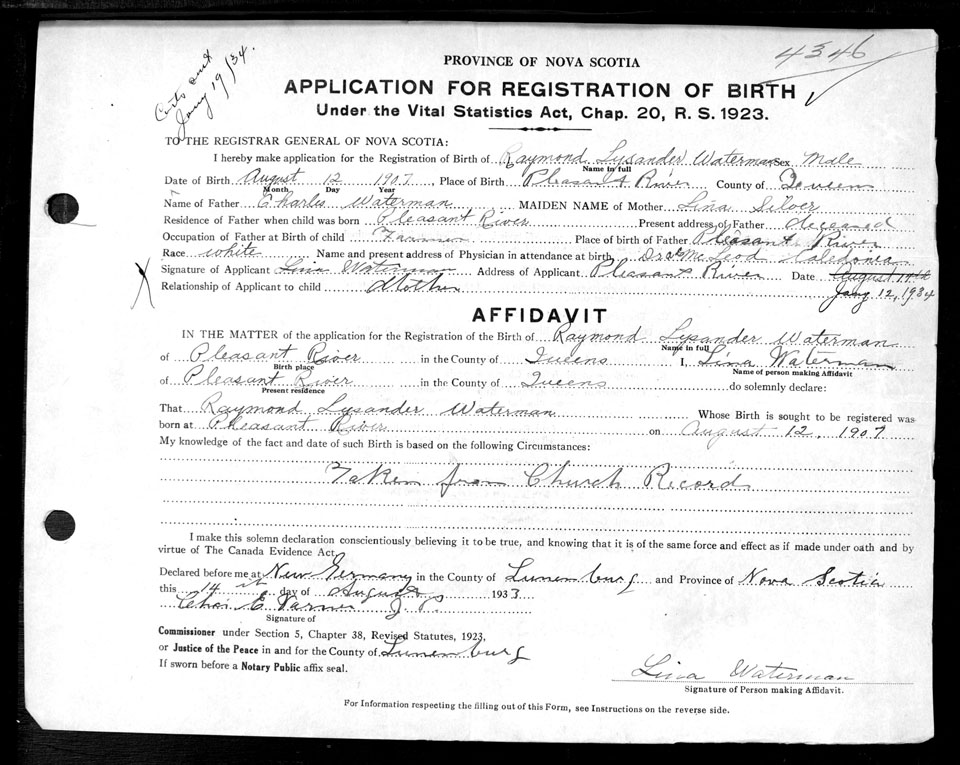 Certs sent
Jany 19/34.
4346
PROVINCE OF NOVA SCOTIA
APPLICATION FOR REGISTRATION OF BIRTH
Under the Vital Statistics Act, Chap. 20, R. S. 1923.
TO THE REGISTRAR GENERAL OF NOVA SCOTIA:
I hereby make application for the Registration of Birth of Raymond Lysander Waterman Sex Male
Name in full
Date of Birth August 12 1907, Place of Birth Pleasant River County of Queens
Month Day Year
Name of Father Charles Waterman MAIDEN NAME of Mother Lina Silver
Residence of Father when child was born Pleasant River Present address of Father deceased
Occupation of Father at Birth of child Farmer Place of birth of Father Pleasant River
Race white Name and present address of Physician in attendance at birth, Dr McLeod Caledonia
Signature of Applicant Lina Waterman Address of Applicant Pleasant River Date August 14
Relationship of Applicant to child Mother Jany 12, 1934
AFFIDAVIT
IN THE MATTER of the application for the Registration of the Birth of Raymond Lysander Waterman
Name in full
of Pleasant River in the County of Queens I, Lina Waterman
Birth place Name of person making Affidavit
of Pleasant River in the County of Queens do solemnly declare:
Present residence
That Raymond Lysander Waterman Whose Birth is sought to be registered was
born at Pleasant River on August 12, 1907
My knowledge of the fact and date of such Birth is based on the following Circumstances:
Taken from Church Record
I make this solemn declaration conscientiously believing it to be true, and knowing that it is of the same force and effect as if made under oath and by
virtue of The Canada Evidence Act.
Declared before me at New Germany in the County of Lunenburg and Province of Nova Scotia
this 14 day of August 1933
Chas. E. Varner J. P.
Signature of
Commissioner under Section 5, Chapter 38, Revised Statutes, 1923,
or Justice of the Peace in and for the County of Lunenburg
If sworn before a Notary Public affix seal.
Lina Waterman
Signature of Person making Affidavit.
For Information respecting the filling out of this Form, see Instructions on the reverse side.